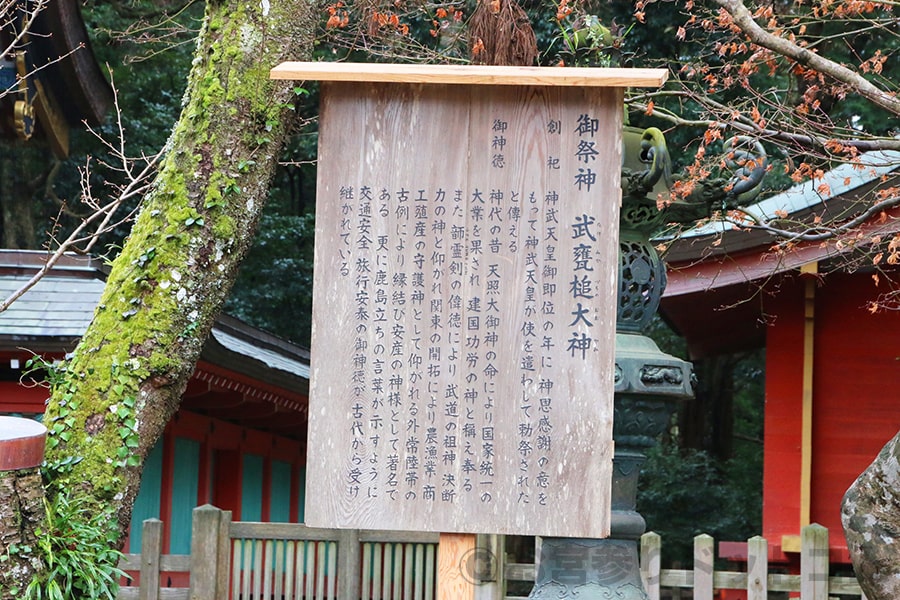 御祭神 武甕槌大神
創祀 神武天皇御即位の年に 神恩感謝の意を
もって神武天皇が使を遣わして勅祭された
と傳える
御神徳 神代の昔 天照大御神の命により国家統一の
大業を果され 建国功労の神と称え奉る
また 韴霊剣の偉徳により 武道の祖神 決断
力の神と仰がれ関東の開拓により農漁業 商
工殖産の守護神として仰がれる外常陸帯の
古例により 縁結び安産の神様として著名で
ある 更に鹿島立ちの言葉が示すように
交通安全 旅行安泰の御神徳が 古代から受け
継がれている